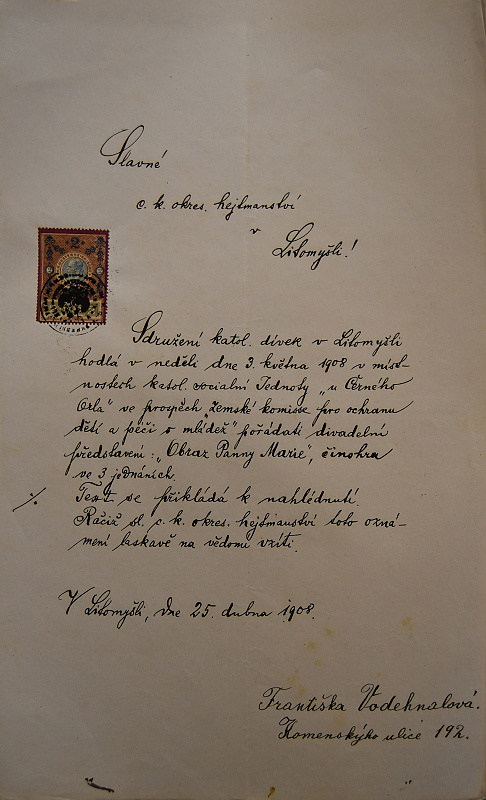 Slavné
c. k. okres. hejtmanství
v
Litomyšli!
2
Sdružení katol. dívek v Litomyšli
hodlá v neděli dne 3. května 1908 v míst-
nostech katol. socialní Jednoty „u Černého
Orla" ve prospěch „zemské komisse pro ochranu
dětí a péči o mládež" pořádati divadelní
představení: „Obraz Panny Marie", činohra
ve 3 jednáních.
Text se přikládá k nahlédnutí.
Račiž sl. c. k. okres. hejtmanství toto ozná-
mení laskavě na vědomí vzíti.
V Litomyšli, dne 25. dubna 1908.
Františka Vodehnalová.
Komenskýho ulice 192.